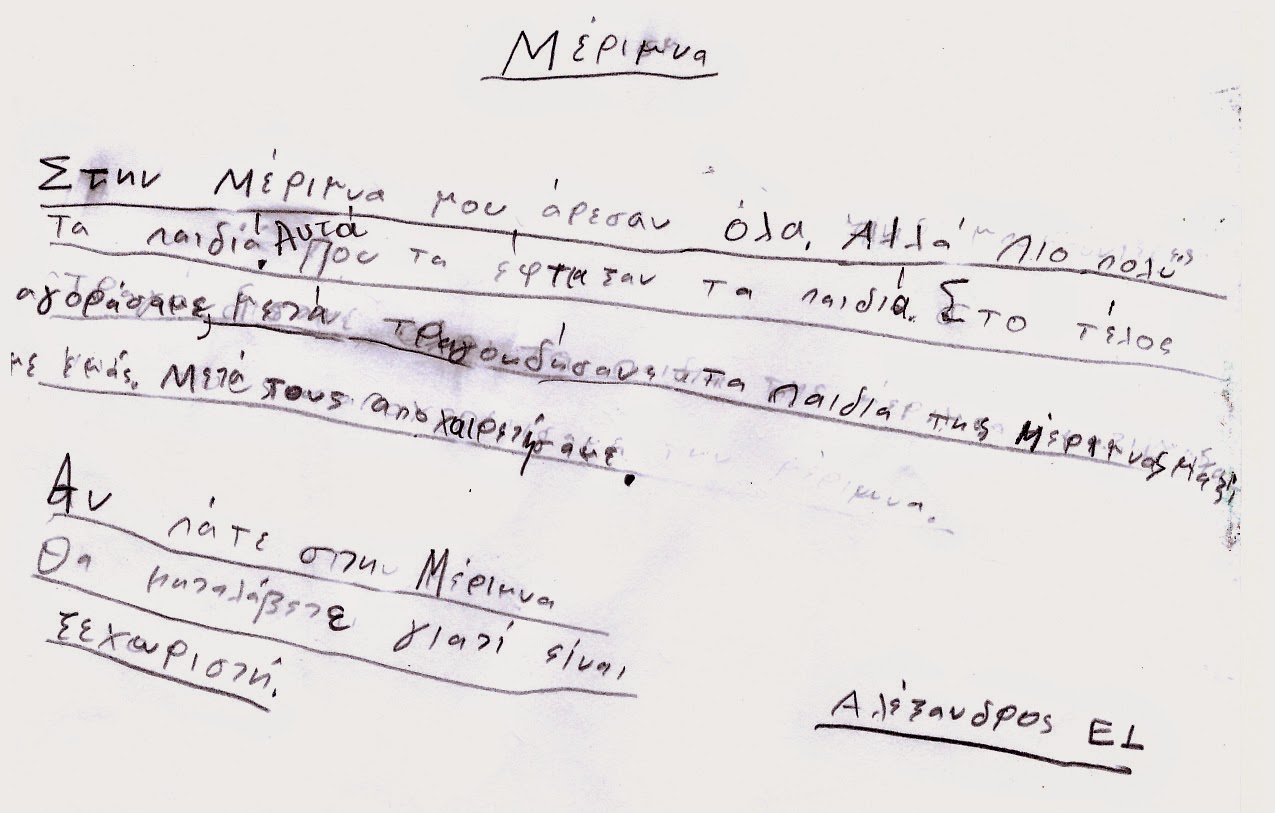 Μέριμνα
Στην Μέριμνα μου άρεσαν όλα. Αλλά πιο πολύ
τα παιδιά. Αυτά που τα έφτιαξαν τα παιδιά. Στο τέλος
αγοράσαμε, μετά τραγουδήσανε τα παιδιά της Μέριμνας μαζί
με εμάς. Μετά τους αποχαιρετήσαμε.
Αν πάτε στην Μέριμνα
θα καταλάβετε γιατί είναι
ξεχωριστή.
Αλέξανδρος Ε1